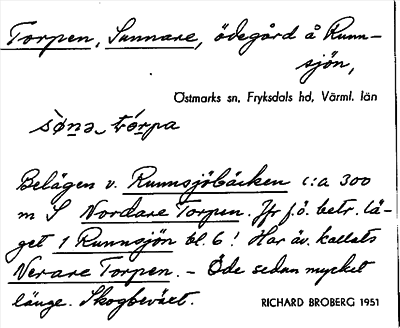 Torpen, Sunnare, ödegård å Runn-
sjön,
Östmarks sn, Fryksdals hd, Värml. län
sö̀nə_tórpa
Belägen v. Runnsjöbäcken c:a 300
m S Nordare Torpen. Jfr f.ö. betr. lä-
get 1 Runnsjön bl. 6! Har äv. kallats
Nerare Torpen. – Öde sedan mycket
länge. Skogbeväxt.
RICHARD BROBERG 1951